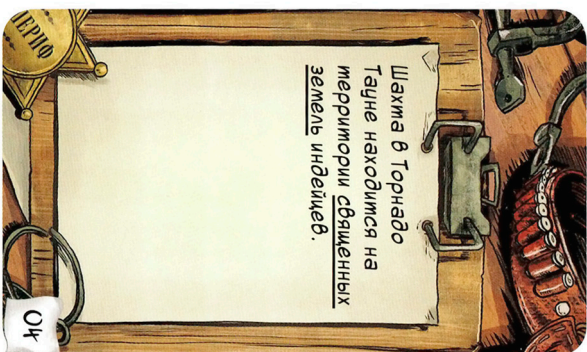 Шахта в Торнадо
Тауне находится на
территории священных
земель индейцев.
04